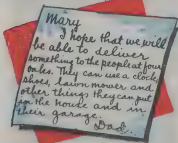 Mary
I hope that we will
be able to deliver
something to the people at four
oakes. They can use a clock,
shoes, lawn mower and
other things they can put
in the house and in
their garage.
Dad.